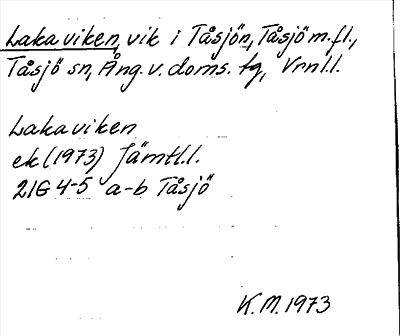 Lakaviken, vik i Tåsjön, Tåsjö m.fl.,
Tåsjö sn, Ång. v. doms. tg, Vrnl.l.
Lakaviken
ek (1973) Jämtl.l.
21G 4-5 a-b Tåsjö
K.M. 1973